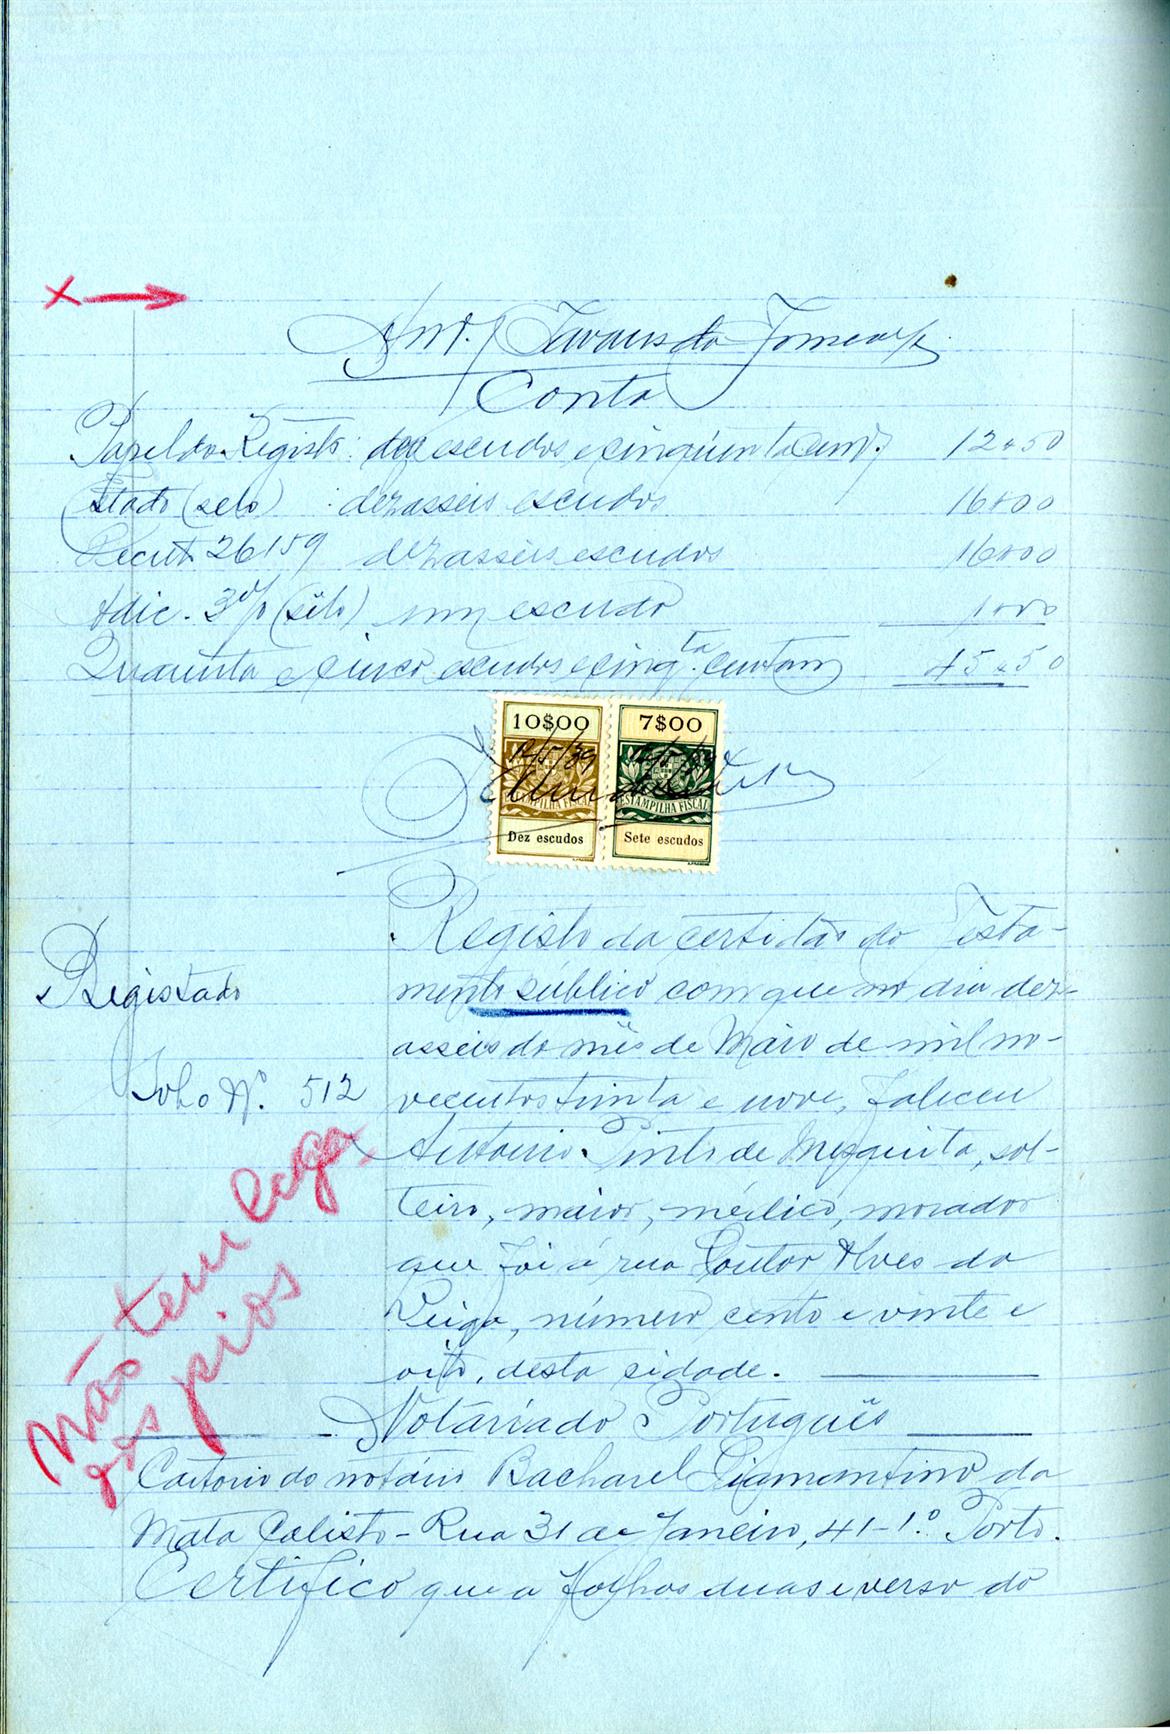 Conta
Papel do Registo: doze escudos e cinqüenta cent.ºs 12$50
Estado (selo) dezasseis escudos 16$00
Decreto 26159 dezasseis escudos 16$00
Adic. 3% (sêlo) um escudo 1$00
Quarenta e cinco escudos e cinqta centavos 45$50
10$00 7$00
12/5/39
ESTAMPILHA FISCAL ESTAMPILHA FISCAL
Dez escudos Sete escudos
Registado
Sob o Nº. 512
Não tem lega
dos pios
Registo da certidão do Testa-
mento público com que no dia dez-
asseis do mês de Maio de mil no-
vecentos trinta e nove, faleceu
António Pinto de Mesquita, sol-
teiro, maior, médico, morador
que foi á rua Doutor Alves da
Veiga, número cento e vinte e
oito, desta cidade.
Notariado Português
Cartorio do notário Bacharel Diamantino da
Mata Calisto - Rua 31 de Janeiro, 41-1.º Porto.
Certifico que a folhas duas e verso do